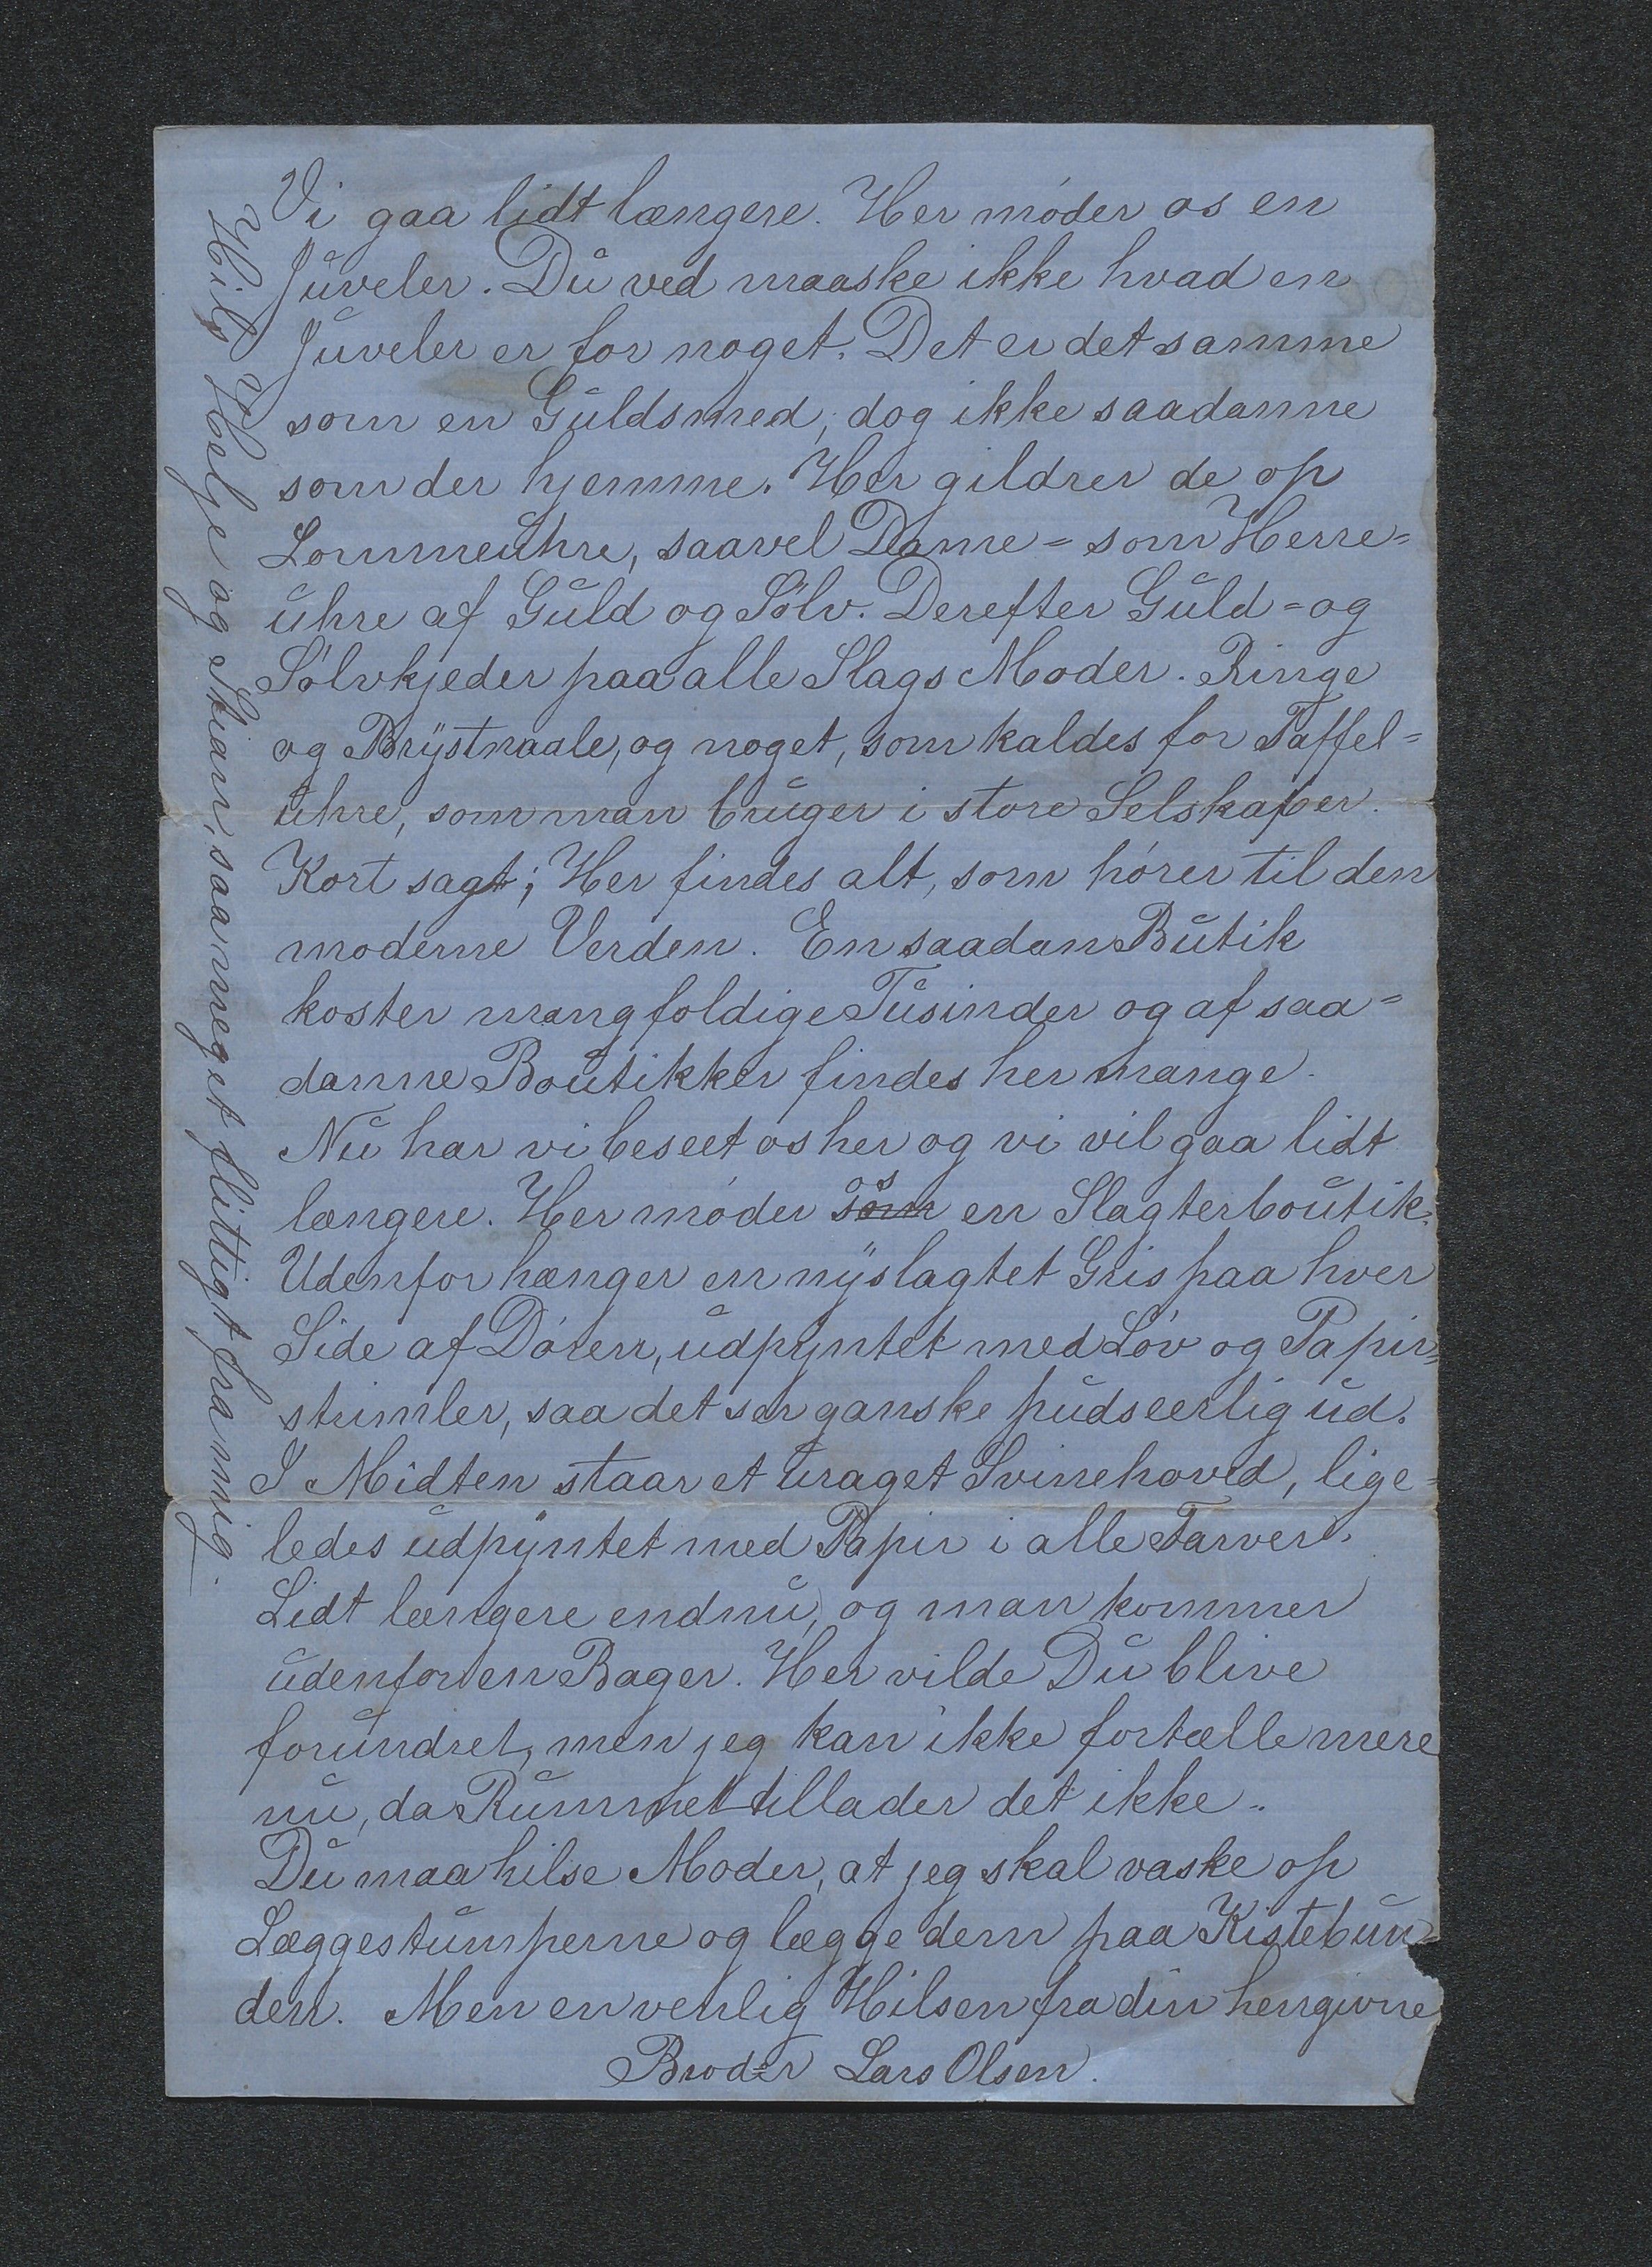 Vi gaa lidt længere. Her møder os en
Juveler. Du ved maaske ikke hvad en
Juveler er for noget. Det er det samme
som en Guldsmed, dog ikke saadanne
som der hjemme. Her gildrer de op
Lommeuhre, saavel Dame= som Herre=
uhre af Guld og Sølv. Derefter Guld= og
Sølvkjeder paa alle Slags Moder. Ringe
og Brystnaale, og noget, som kaldes for Taffel=
uhre, som man bruger i store Selskaper.
Kort sagt; Her findes alt, som hører til den
moderne Verden. En saadan Butik
koster mangfoldige Tusinder og af saa=
danne Boutikker findes her mange.
Nu har vi beseet os her og vi vil gaa lidt
længere. Her møder os en Slagterboutik.
Udenfor hænger en nyslagtet Gris paa hver
Side af Døren, udpyntet med Løv og Papir=
strimler, saa det ser ganske pudseerlig ud.
I Midten staar et uraget Svinehoved, lige=
ledes udpyntet med Papir i alle Farver.
Lidt længere endnu, og man kommer
udenfor en Bager. Her vilde Du blive
forundret, men jeg kan ikke fortælle mere
nu, da Rummet tillader det ikke.
Du maa hilse Moder, at jeg skal vaske op
Læggestumperne og lægge dem paa Kistebun=
den. Men en venlig Hilsen fra din hengivne
Broder Lars Olsen.
Hils Helje og Stian, saa meget flittigt fra mig.